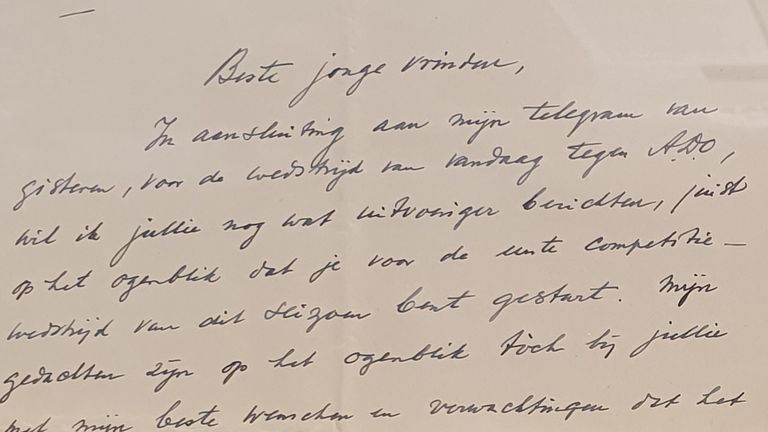 Beste jonge vrinden,
In aansluiting aan mijn telegram van
gisteren, voor de wedstrijd van vandaag tegen A.D.O,
wil ik jullie nog wat uitvoeriger berichten, juist
op het ogenblik dat je voor de eerste competitie-
wedstrijd van dit seizoen bent gestart. Mijn
gedachten zijn op het ogenblik tòch bij jullie
met mijn beste wenschen en verwachtingen dat het